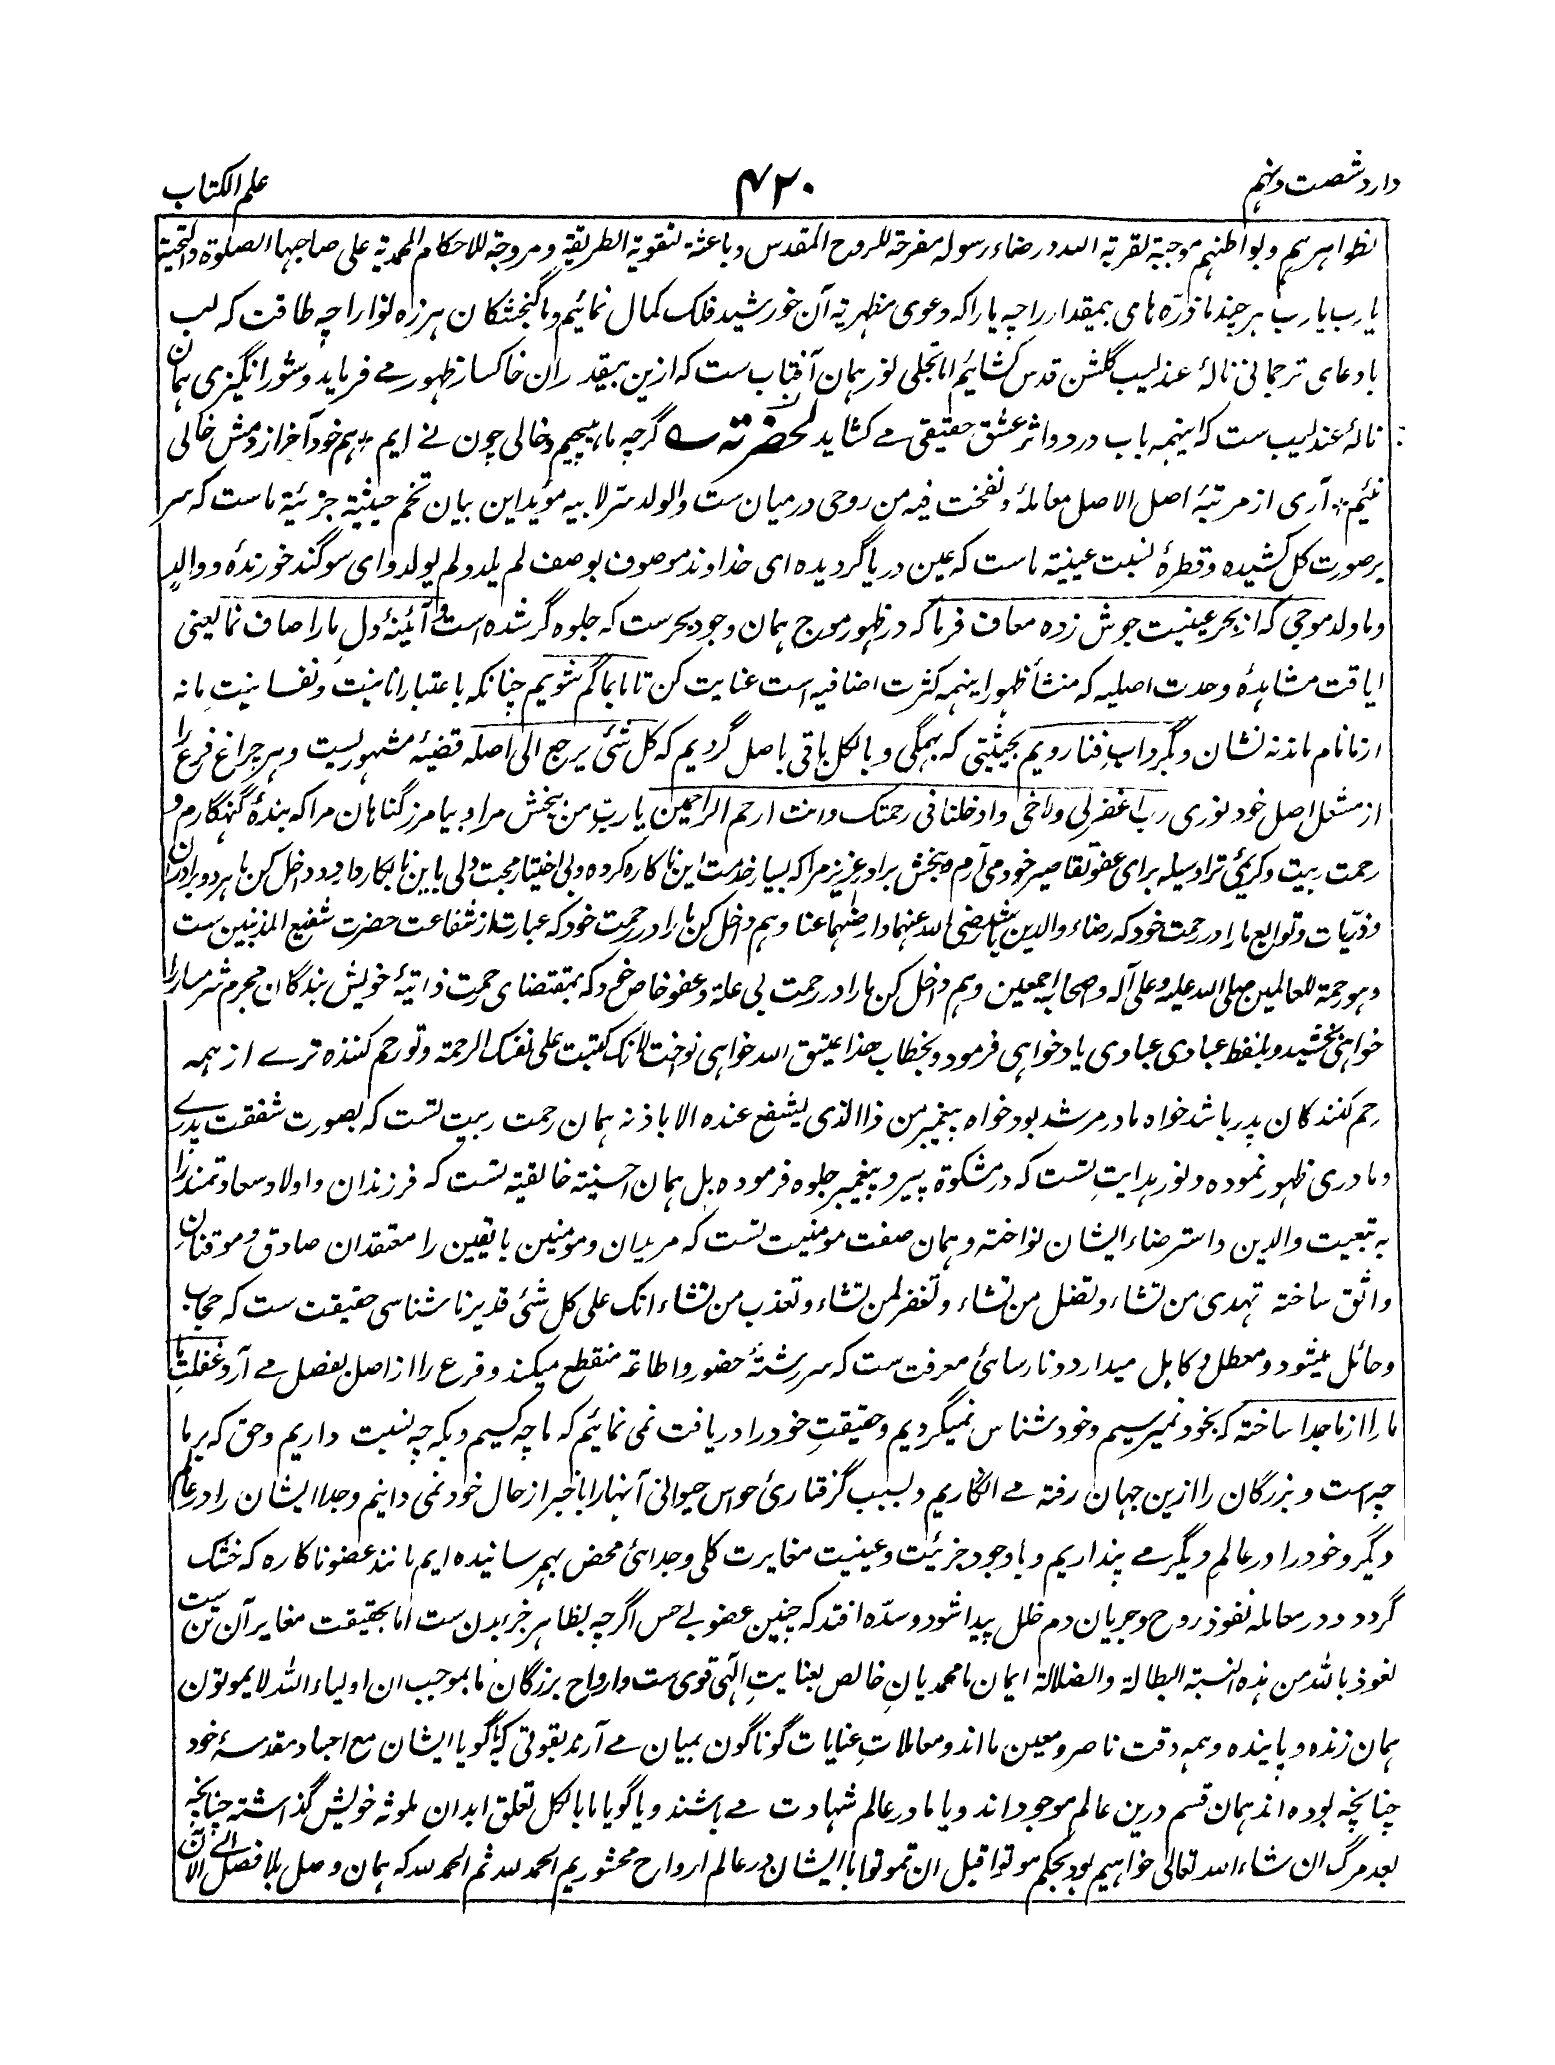 وارد شصت و نهم
۴۲۰
علم الکتاب
بظواهرهم و بواطنهم موجبة لقربة الله و رضاء رسوله مفرحة للروح المقدس و باعثة لتقویة الطریقة و مروجة للاحکام المحمدیة علی صاحبها الصلوة و التحیة
یا رب یا رب هر چند ما ذرّه های بیمقدار را چه یارا که دعوی مظهریة آن خورشید فلک کمال نمائیم و ما گنجشکان هرزه نوا را چه طاقت که لب
بادعای ترجمانی نالهٔ عندلیب گلشن قدس کشائیم اما تجلی نور همان آفتاب ست که ازین بیقدران خاکسار ظهور مے فرماید و شور انگیزی همان
نالهٔ عندلیب ست که اینهمه باب درد و اثر عشق حقیقی مے کشاید لحضرته گرچه ما هیچیم و خالی چون نے ایم * هم خود آخر از دمش خالی
نئیم * آری از مرتبهٔ اصل الاصل معاملهٔ و نفخت فیه من روحی درمیان ست و الولد سرّ لابیه مؤید این بیان تخم حیثیة جزئیة ماست که سر
برصورت کل کشیده و قطرهٔ نسبت عینیة ماست که عین دریا گردیده ای خداوند موصوف بوصف لم یلد و لم یولد و ای سوگند خورندهٔ و والدٍ
و ما ولد موجی که از بحر عینیت جوش زده معاف فرما که در ظهور موج همان وجود بحرست که جلوه گر شده است و آئینهٔ دلِ ما را صاف نما یعنی
لیاقت مشاهدهٔ وحدت اصلیه که منشأ ظهور اینهمه کثرت اضافیه است عنایت کن تا ما بما گم شویم چنانکه باعتبار انانیت و نفسانیتِ ما نه
از ما نام ماند نه نشان و بگردابِ فنا رویم بحیثیتی که بهمگی و بالکل باقی باصل گردیم که کل شئ یرجع الی اصله قضیهٔ مشهوریست و هر چراغ فرع را
از مشعل اصل خود نوری رب اغفر لی ولاخی و ادخلنا فی رحمتک و انت ارحم الراحمین یا ربِ من ببخش مرا و بیامرز گناهان مرا که بندهٔ گنهگارم و
رحمت ربیت و کریمیٔ ترا وسیله برای عفو تقاصیر خود می آرم و ببخش برادر عزیز مرا که بسیار خدمت این ناکاره کرده و بی اختیار محبت دلی باین نابکار دارد و داخل کن ما هر دو برادران
و ذرّیات و توابع ما را در رحمت خود که رضاء والدین باشد رضی الله عنهما و ارضهما عنا و هم داخل کن ما را در رحمت خود که عبارت از شفاعت حضرت شفیع المذنبین ست
و هو رحمة للعالمین صلی الله علیه و علی آله و اصحابه اجمعین و هم داخل کن ما را در رحمت بی علة و عفو خاص خود که بمقتضای رحمت ذاتیهٔ خویش بندگان مجرم شرمسار را
خواهی بخشید و بلفظ عبادی عبادی یاد خواهی فرمود و بخطاب هذا عتیق الله خواهی نواخت لانک کتبت علی نفسک الرحمة و تو رحم کننده ترے از همه
رحم کنندگان پدر باشد خواه مادر مرشد بود خواه پیغمبر من ذا الذی یشفع عنده الا باذنه همان رحمت ربیت تست که بصورت شفقت پدرے
و مادری ظهور نموده و نور هدایتِ تست که در مشکوة پیر و پیغمبر جلوه فرموده بل همان احسنیة خالقیة تست که فرزندان و اولاد سعادتمند را
به تبعیت والدین و استرضاء ایشان نواخته و همان صفت مومنیت تست که مریدان و مومنین بایقین را معتقدان صادق و موقنانِ
واثق ساخته تهدی من تشاء و تضل من تشاء و تغفر لمن تشاء و تعذب من تشاء انک علی کل شئ قدیر ناشناسی حقیقت ست که حجاب
و حائل میشود و معطل و کاهل میدارد و نارسائیٔ معرفت ست که سررشتهٔ حضور و اطاعة منقطع میکند و فرع را از اصل بفصل مے آرد غفلتِ ما
ما را از ما جدا ساخته که بخود نمیرسیم و خود شناس نمیگردیم و حقیقتِ خود را دریافت نمی نمائیم که ما چه کسیم و بکه چه نسبت داریم و حق که بر ما
چه است و بزرگان را ازین جهان رفته مے انگاریم و بسبب گرفتاریٔ حواس حیوانی آنها را باخبر از حال خود نمی دانیم و جدا ایشان را در عالم
دیگر و خود را در عالمِ دیگر مے پنداریم و با وجود جزئیت و عینیت مغایرت کلی و جدائیٔ محض بهم رسانیده ایم مانند عضو ناکاره که خشک
گردد و در معامله نفوذ روح و جریان دم خلل پیدا شود و سدّه افتد که چنین عضو بے حس اگرچه بظاهر جزء بدن ست اما بحقیقت مغایر آن تن ست
نعوذ بالله من هذه النسبة البطالة و الضلالة ایمان ما محمدیانِ خالص بعنایتِ الٓهی قوی ست و ارواح بزرگان ما بموجب ان اولیاء الله لا یموتون
همان زنده و پاینده و همه وقت ناصر و معین ما اند و معاملاتِ عنایات گوناگون بمیان مے آرند بقوتی که گویا ایشان مع اجساد مقدسهٔ خود
چنانچه بوده اند همان قسم درین عالم موجود اند و یا ما در عالم شهادت مے باشند و یا گویا ما بالکل تعلق ابدان ملوثه خویش گذاشته چنانچه
بعد مرگ ان شاء الله تعالی خواهیم بود بحکم موتوا قبل ان تموتوا با ایشان در عالم ارواح محشوریم الحمد لله ثم الحمد لله که همان وصل بلا فصل الے الآن